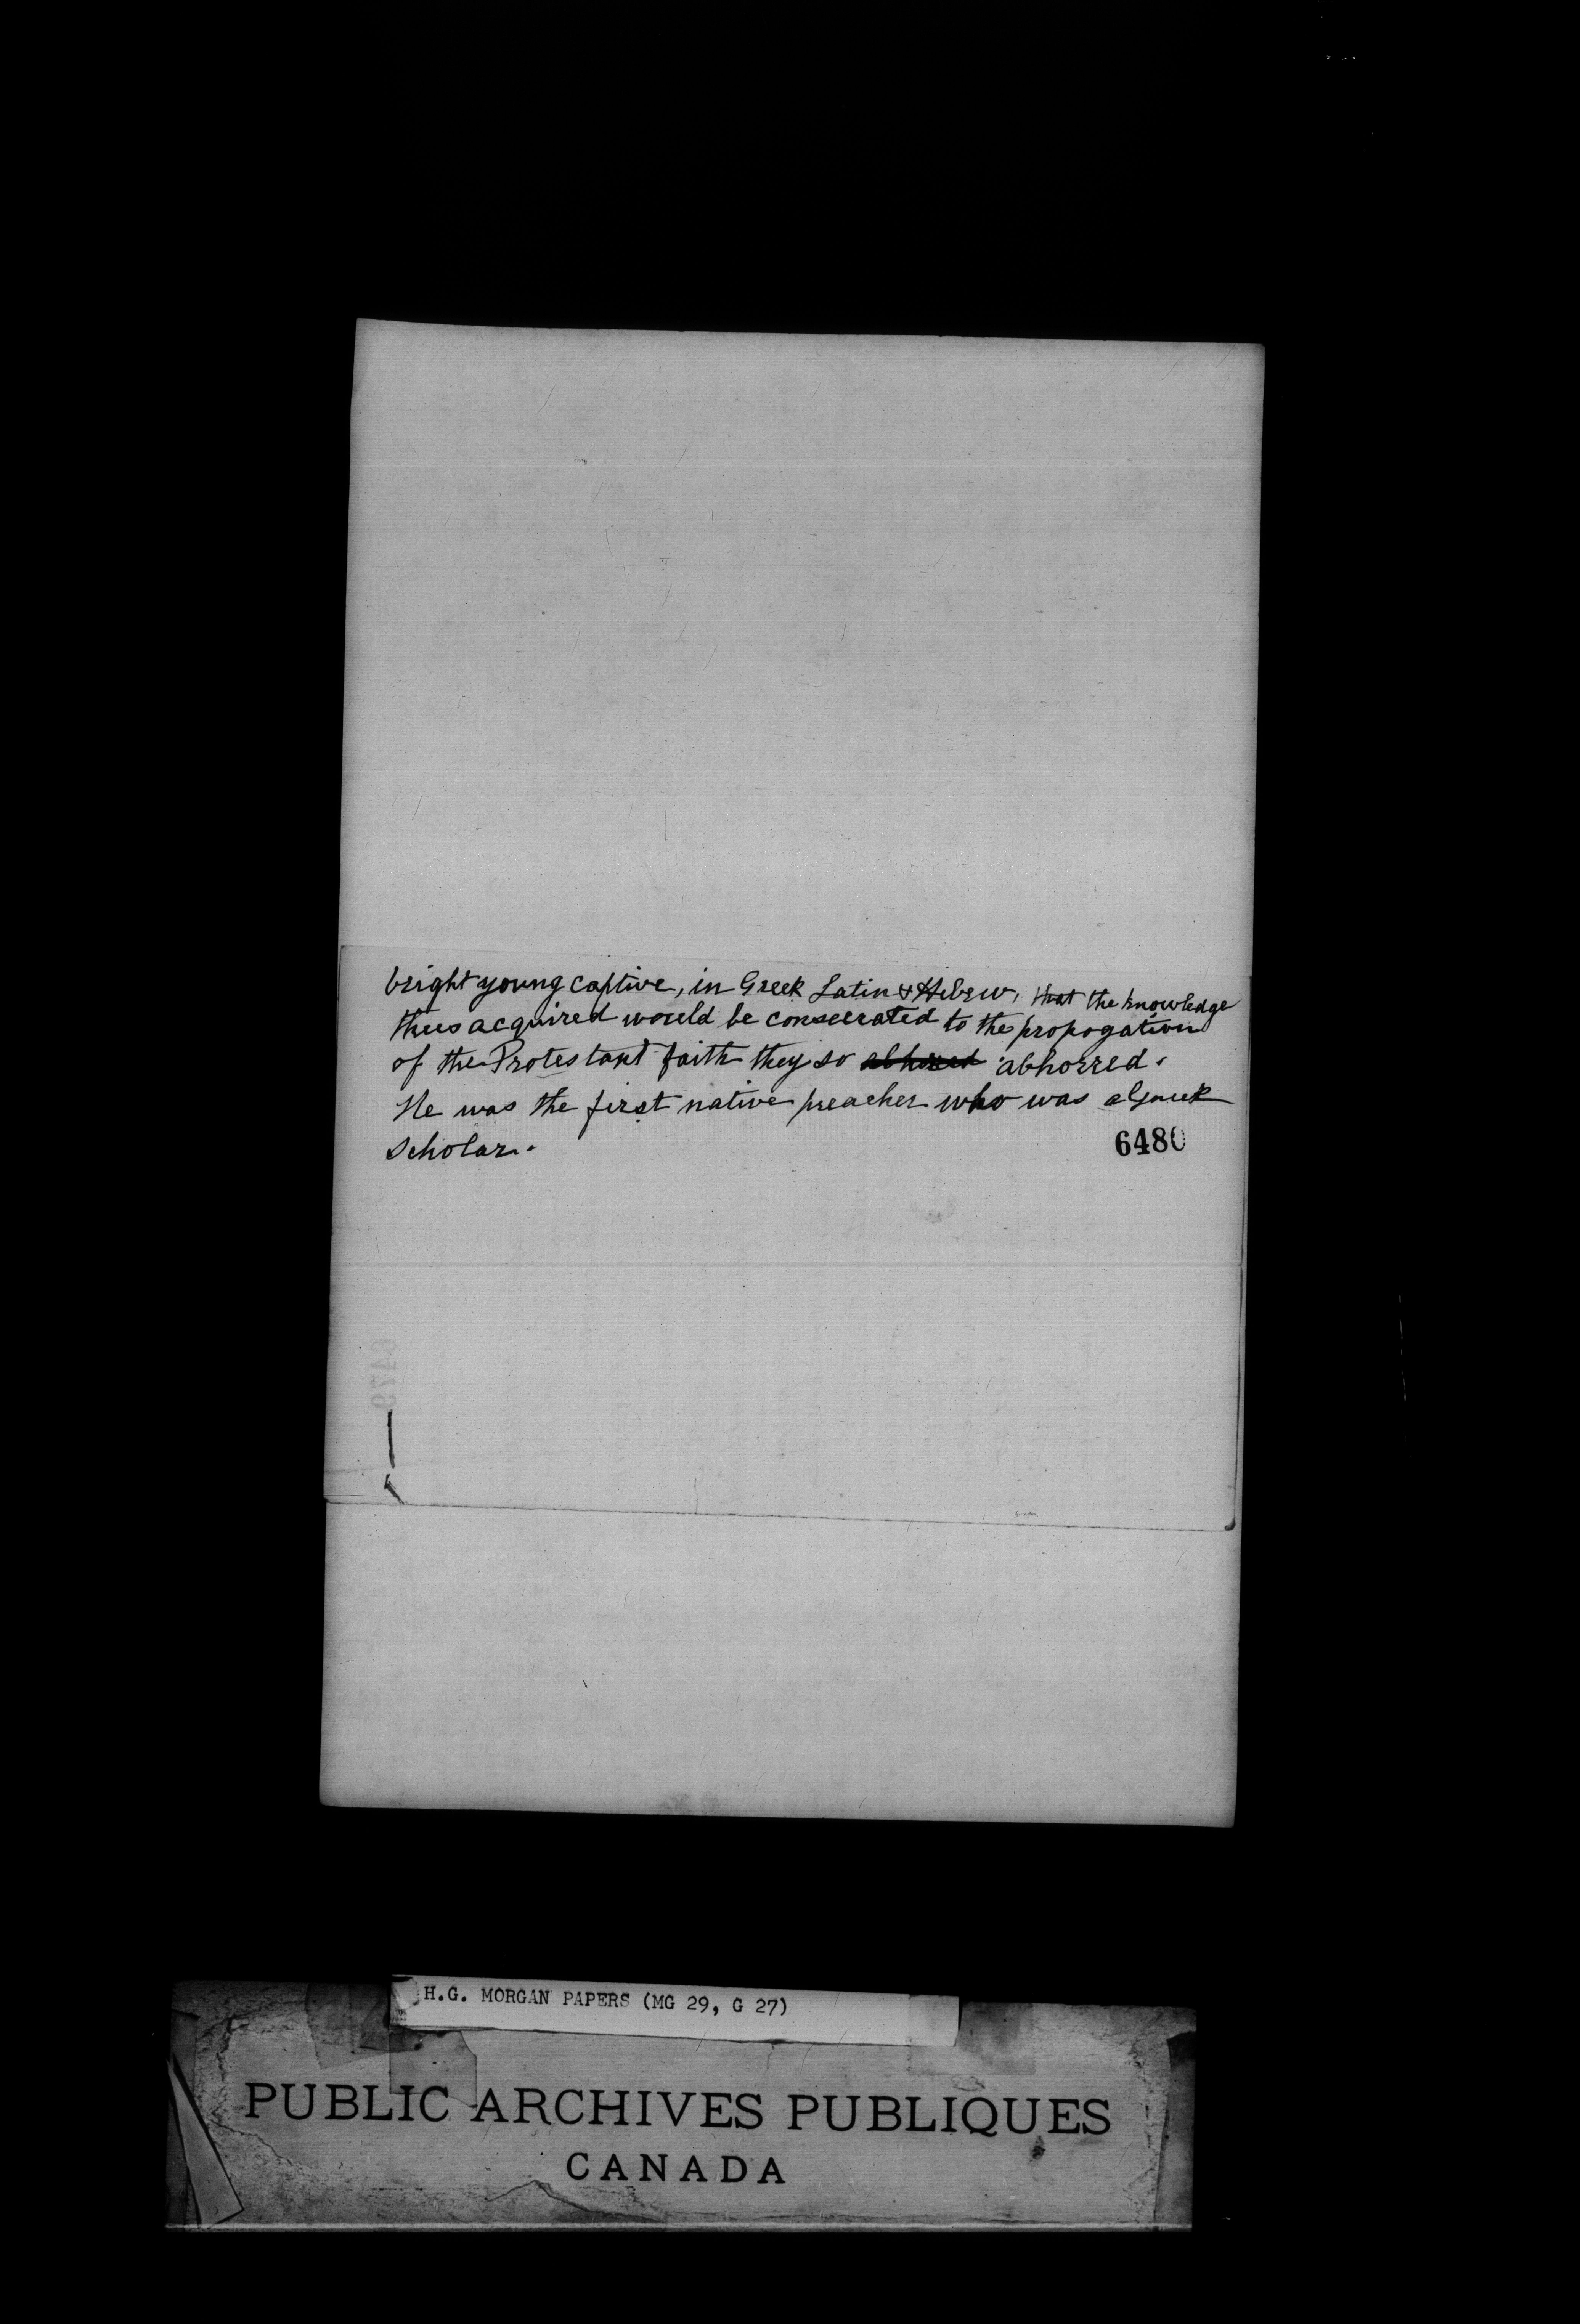 bright young captive, in Greek Latin & Hebrew, that the knowledge
thus acquired would be consecrated to the propogation
of the Protestant faith they so abhored abhorred.
He was the first native preacher who was a Greek
scholar.
6480
6479
H.G. MORGAN PAPERS (MG 29, G 27)
PUBLIC ARCHIVES PUBLIQUES
CANADA